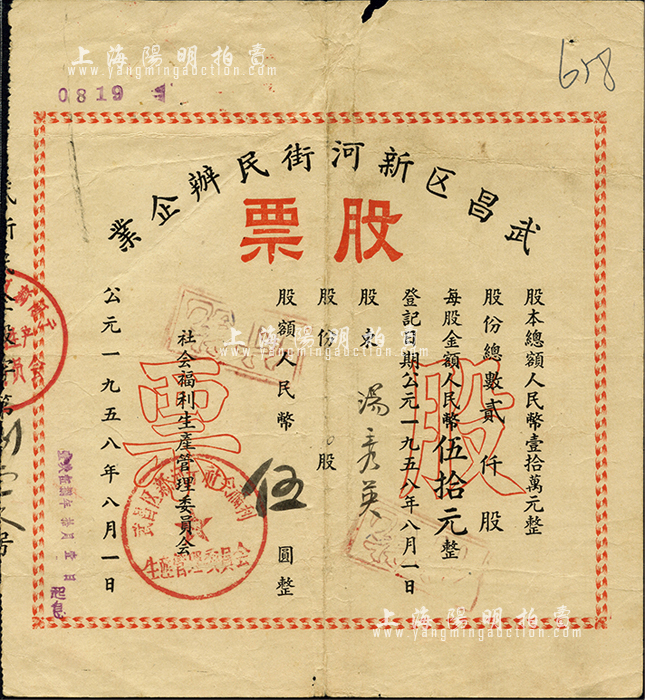 上海陽明拍賣
www.yangmingauction.com
0819
658
武昌区新河街民辦企業
股票
股本總額人民幣壹拾萬元整
股份總數貳仟股
每股金額人民幣伍拾元整
登記日期公元一九五八年八月一日
股東 湯秀英
股份 股
股額人民幣 伍 圓整
社会福利生產管理委員会
公元一九五八年八月一日
股
票
武昌区新河街社会福利
生產管理委員会
起息
上海陽明拍賣
www.yangmingauction.com
上海陽明拍賣
www.yangmingauction.com